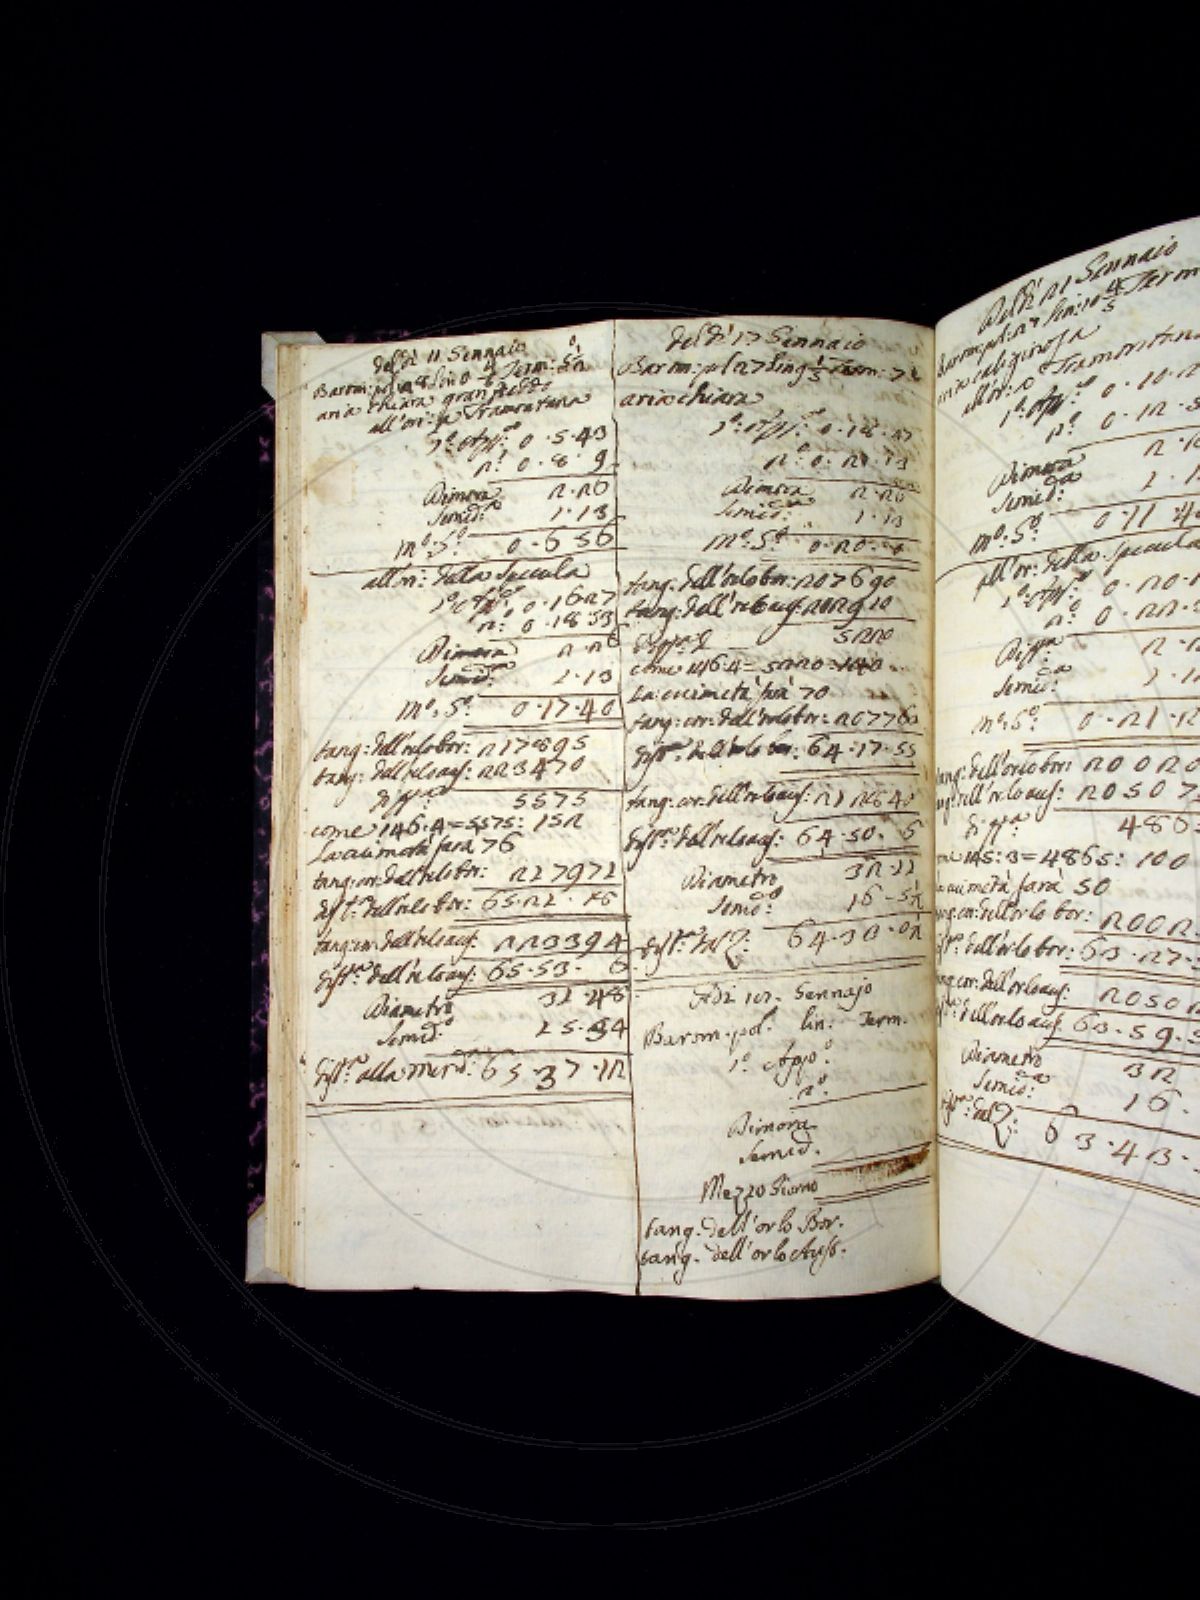 del dì 11 Gennaio
Barom: pol: 28 lin: 0 4/5 Term: 5
aria chiara gran freddo
all'or: a Tramontana
1º: App:º 0 . 5 . 43
2º: 0 . 8 . 9
Dimora 2 . 26
Semid:ª 1 . 13
mº: Gº: 0 . 6 56
all'or: della Specula
1º App:º 0 . 16 27
2º: 0 . 18 53
Dimora 2 . 26
Semid:ª 1 . 13
Mº: Gº: 0 . 17 . 40
tang: dell'orlo bor: 217895
tang: dell'orlo aus: 223470
diff:ª 5575
come 146 . 4 = 5575 : 152
La cui metà farà 76
tang: cor: dell'orlo bor: 217971
dist:ª dell'orlo bor: 65 . 21 . 18
tang: cor: dell'orlo aus: 223394
dist:ª dell'orlo aus: 65 . 53 . 6
Diametro 31 . 48
Semid:º 15 . 54
dist:ª alla merid: 65 . 37 . 12
del dì 17 Gennaio
Barom: pol 27 lin 9 1/3 Term: 7
aria chiara
1º: App:º 0 . 18 . 47
2º: 0 . 21 . 13
Dimora 2 . 26
Semid:ª 1 . 13
Mº: Gº: 0 . 20 .
tang: dell'orlo bor: 207690
tang: dell'orlo aus: 212910
Diff:ª 5220
come 146 . 4 = 5220 : 140
La cui metà farà 70
tang: cor: dell'orlo bor: 207760
dist:ª dell'orlo bor: 64 . 17 . 55
tang: cor: dell'orlo aus: 212840
dist:ª dell'orlo aus: 64 . 50 . 6
Diametro 32 . 11
Semid:º 16 . 5
dist:ª dal Z: 64 . 34 . 01
Adì Gennajo
Barom. pol. lin. Term.
1º Appº:
2º:
Dimora
Semid.
Mezzo Giorno
tang. dell'orlo Bor.
tang. dell'orlo Aust.
Del dì 21 Gennaio
Barom: pol: 27 lin: 10 4/5 Term
aria caliginosa
all'or: a Tramontana
1º: App:º 0 . 10 .
2º: 0 . 12 .
Dimora 2 .
Semid:ª 1 .
Mº: Gº: 0 . 11 .
all'or: della Specula
1º: App: 0 . 20 .
2º: 0 . 22 .
Diff:ª 2 .
Semid:ª 1 .
Mº: Gº: 0 . 21 .
tang: dell'orlo bor: 20020
tang: dell'orlo aus: 20507
diff:ª 486
come 145 : 3 = 4865 : 100
La cui metà farà 50
tang: cor: dell'orlo bor: 2002
dist:ª dell'orlo bor: 63 . 27 .
tang: cor: dell'orlo aus: 2050
dist:ª dell'orlo aus: 63 . 59 .
Diametro 32
Semid:ª 16 .
dist:ª dal Z: 63 . 43 .